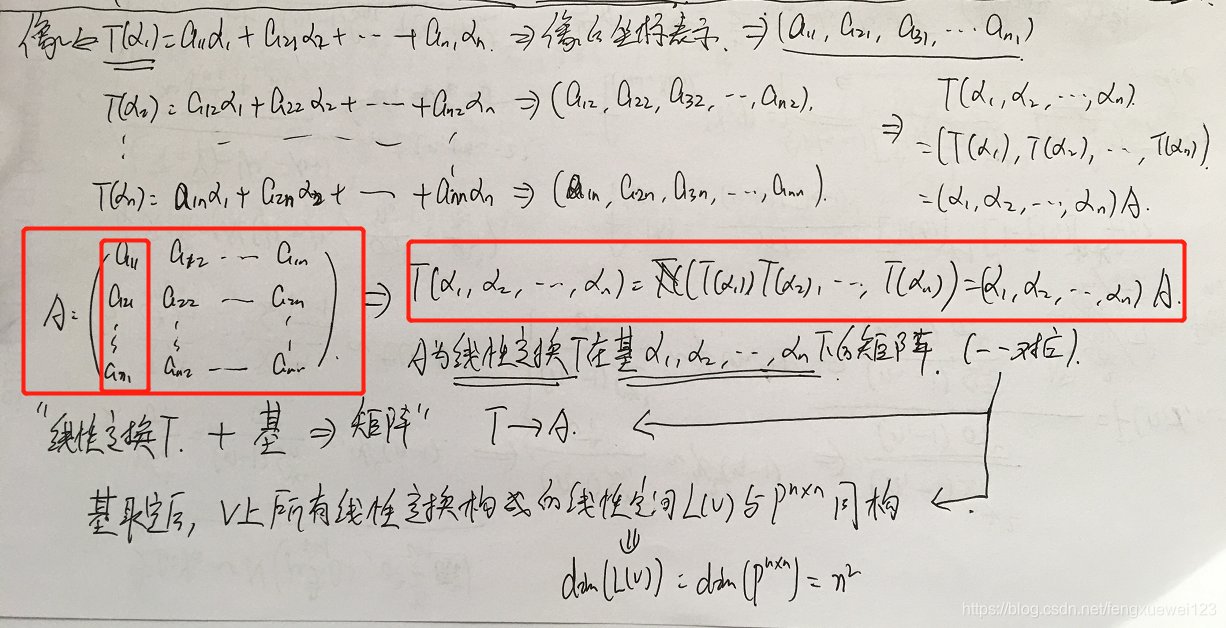 像 ⇐ T(α₁) = a₁₁α₁ + a₂₁α₂ + ⋯ + aₙ₁αₙ ⇒ 像的坐标表示 ⇒ (a₁₁, a₂₁, a₃₁, ⋯ aₙ₁)
T(α₂) = a₁₂α₁ + a₂₂α₂ + ⋯ + aₙ₂αₙ ⇒ (a₁₂, a₂₂, a₃₂, ⋯, aₙ₂).
T(αₙ) = a₁ₙα₁ + a₂ₙα₂ + ⋯ + aₙₙαₙ ⇒ (a₁ₙ, a₂ₙ, a₃ₙ, ⋯, aₙₙ).
⇒ T(α₁, α₂, ⋯, αₙ).
= (T(α₁), T(α₂), ⋯, T(αₙ))
= (α₁, α₂, ⋯, αₙ) A.
A = ( a₁₁ a₁₂ ⋯ a₁ₙ
a₂₁ a₂₂ ⋯ a₂ₙ
⋮ ⋮ ⋮
aₙ₁ aₙ₂ ⋯ aₙₙ ).
⇒ T(α₁, α₂, ⋯, αₙ) = (T(α₁) T(α₂), ⋯, T(αₙ)) = (α₁, α₂, ⋯, αₙ) A.
A为线性变换T在基 α₁, α₂, ⋯, αₙ 下的矩阵. (一一对应).
"线性变换T. + 基 ⇒ 矩阵" T → A. ←
基取定后, V上所有线性变换构成的线性空间L(V)与Pⁿˣⁿ同构 ←
⇓
dim(L(V)) = dim(Pⁿˣⁿ) = n²
https://blog.csdn.net/fengxuewei123